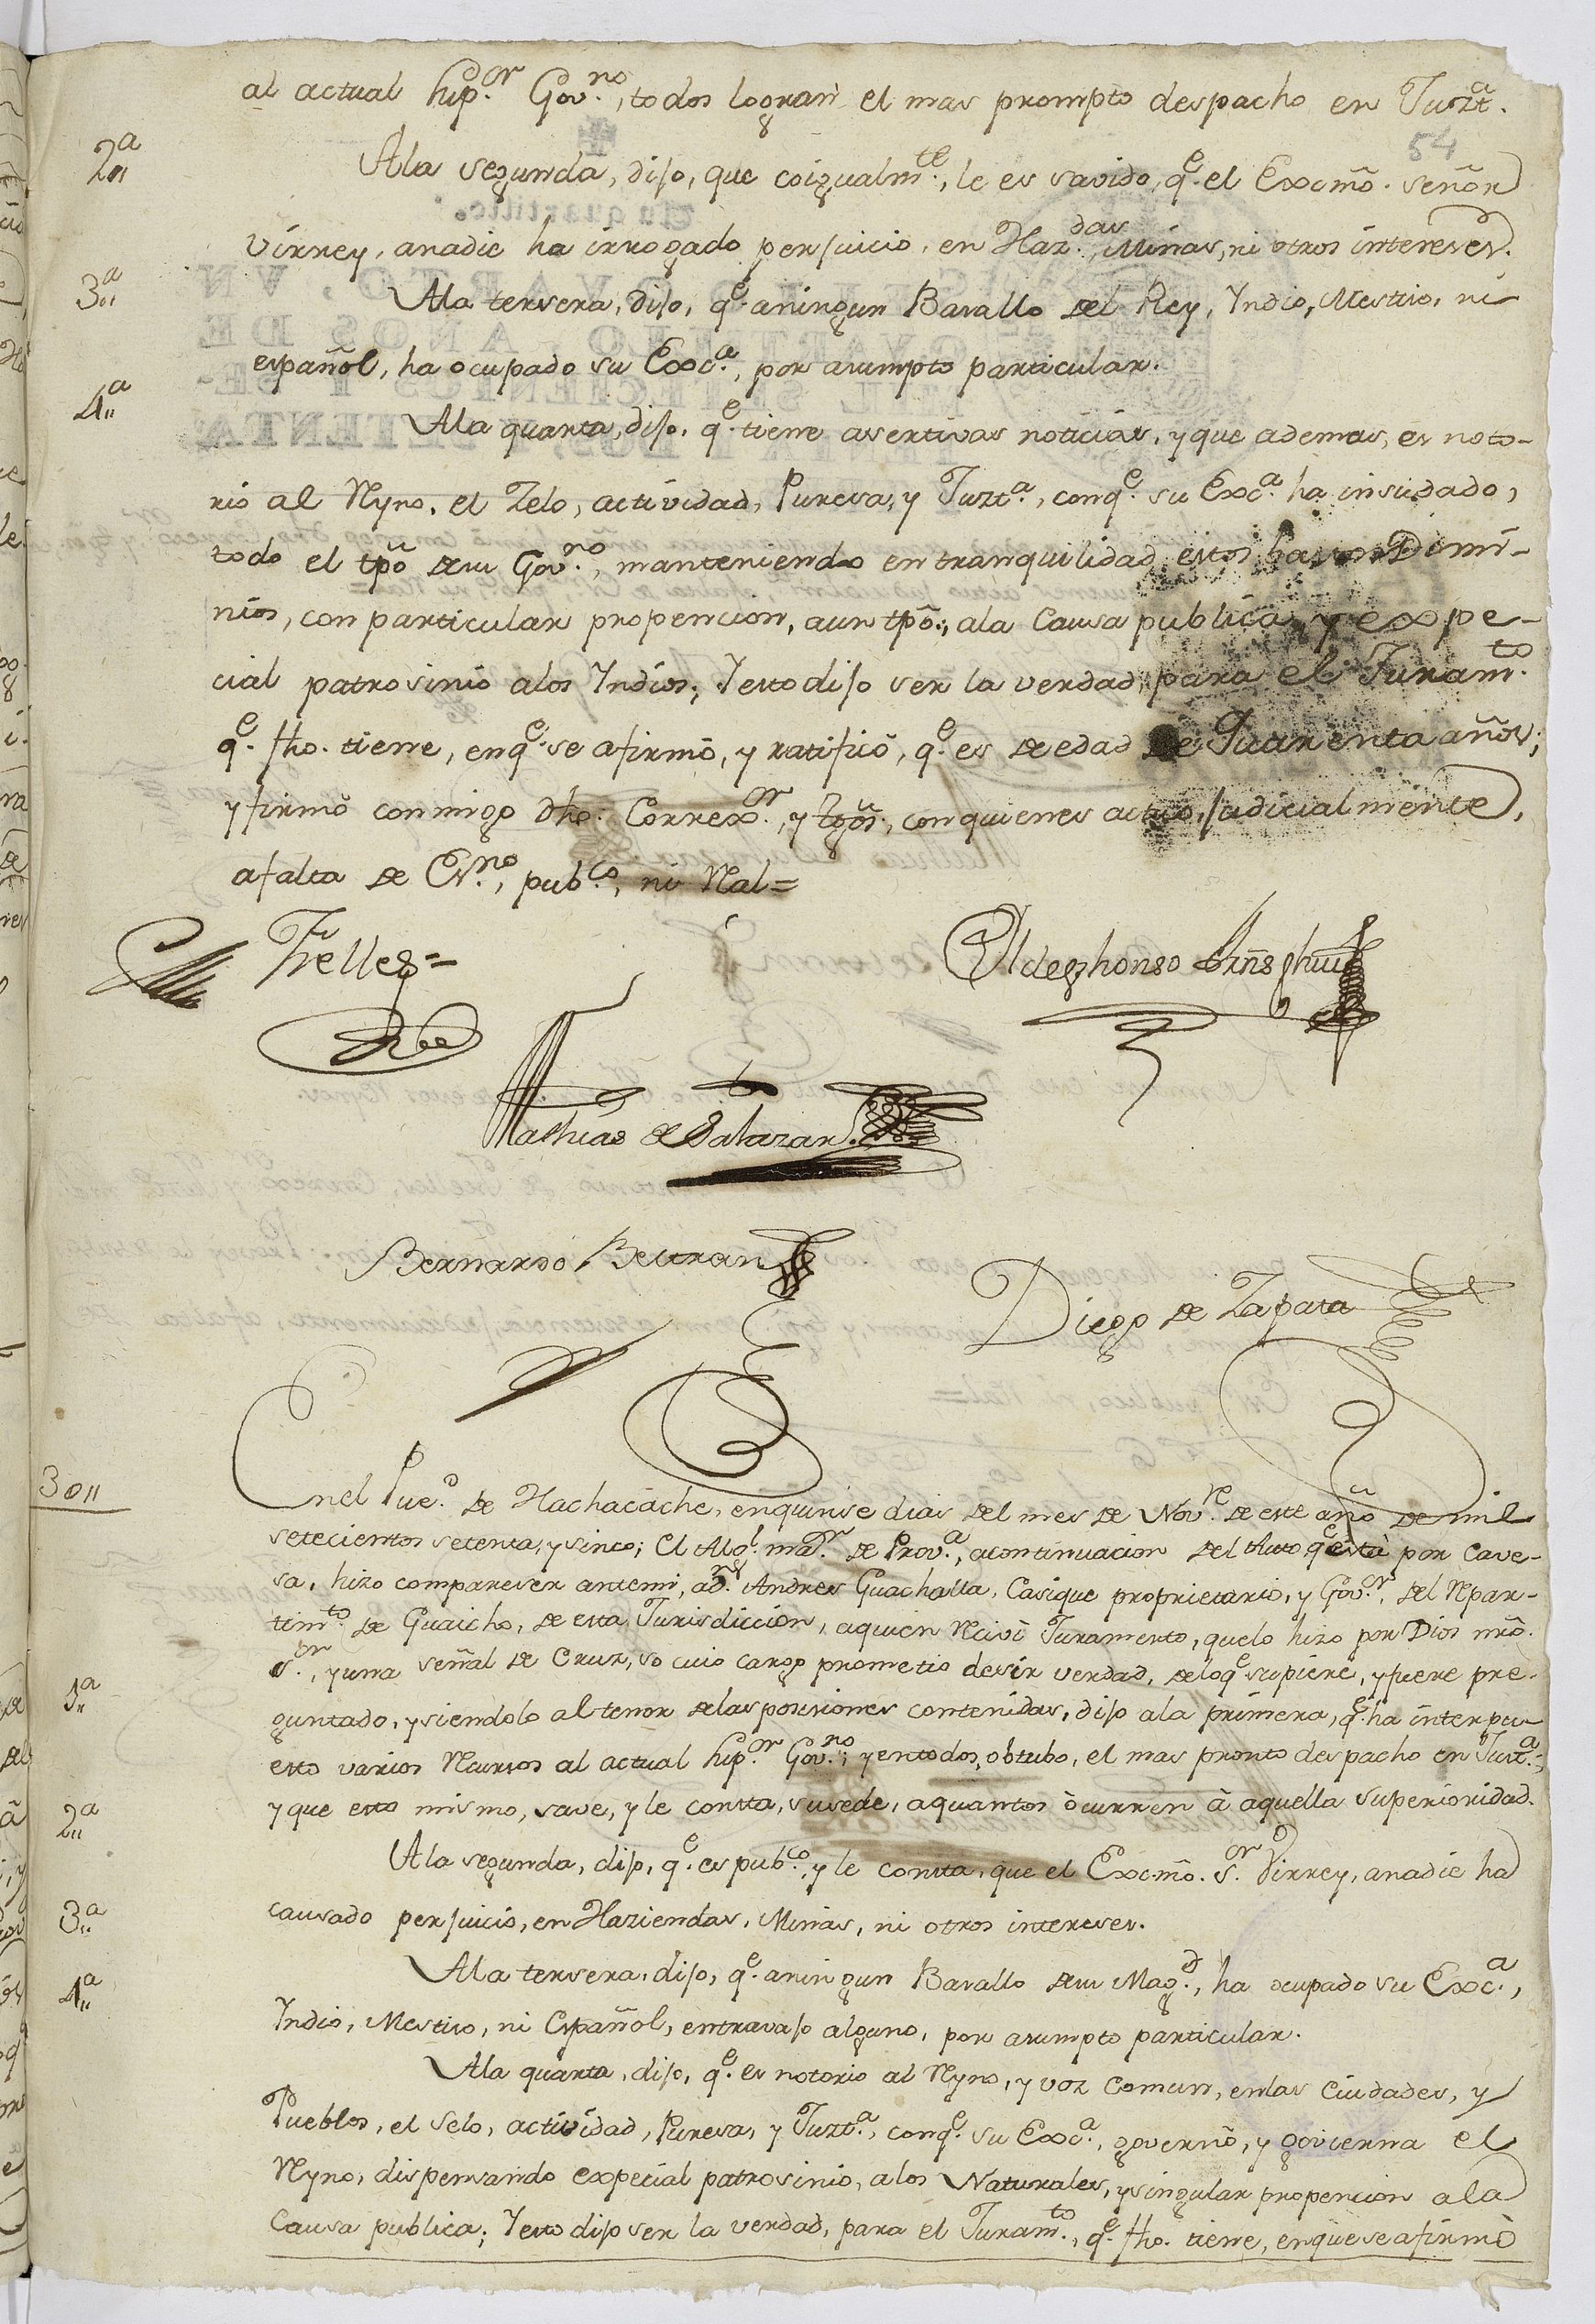 al actual Sup.or Gov.no, todos logran el mas prompto despacho en Juzt.a
54
2a
A la segunda, dijo, que coigualm.te, le es savido, q.e el Excmõ. señor
virrey, anadie ha irrogado perjuicio, en Haz.das, Minas, ni otros intereses.
3a
A la tersera, dijo, q.e aningun Basallo del Rey, Yndio, Mestiso, ni
español, ha ocupado su Exc.a, por asumpto particular.
4a
A la quarta, dijo, q.e tiene asertivas noticias, y que ademas, es noto-
rio al Ryno, el Zelo, actividad, Puresa, y Juzt.a, conq.e su Exc.a ha insudado,
todo el tpõ desu Gov.no, manteniendo en tranquilidad estos Domi-
nios, con particular propencion, aun tpõ., ala Causa publica, y expe-
cial patrosinio alos Yndios; Y esto dijo ser la verdad, para el Juram.to
q.e fho. tiene, enq.e se afirmó, y ratificó, q.e es de edad de Quarenta años;
y firmó conmigo dho. Correx.or, y tgõs., con quienes actuo judicialmente,
afalta de Es.no, pub.co, ni Real=
Trelles=
Ildephonso
Mathias de Salazar
Bernardo Beltran
Diego de Zapata
30
Enel Pue.o de Hachacache, en quinse dias del mes de Nov.re de este año de mil
setecientos setenta, y sinco; El Alg.l ma.r de Prov.a, acontinuacion del Auto q.e està por cave-
sa, hizo compareser antemi, ad.n Andres Guachalla, Casique proprietario, y Gov.or, del Repar-
tim.to de Guaicho, de esta Jurisdiccion, aquien Resivi Juramento, quelo hizo por Dios nrõ.
S.or, y una señal de Cruz, so cuio cargo prometio desir verdad, deloq.e supiere, y fuere pre-
1a
guntado, y siendolo al tenor delas posisiones contenidas, dijo ala primera, q.e ha interpu-
esto varios Recursos al actual Sup.or Gov.no; y entodos, obtubo, el mas pronto despacho en Just.a;
y que esto mismo, save, y le consta, susede, aquantos ócurren à aquella superioridad.
2a
A la segunda, dijo, q.e es pub.co, y le consta, que el Excmõ. S.or Virrey, anadie ha
causado perjuicio, en Haziendas, Minas, ni otros intereses.
3a
A la tersera, dijo, q.e aningun Basallo desu Mag.d, ha ocupado su Exc.a,
Yndio, Mestiso, ni Español, entravajo alguno, por asumpto particular.
4a
A la quarta, dijo, q.e es notorio al Ryno, y voz comun, enlas Ciudades, y
Pueblos, el selo, actividad, Puresa, y Juzt.a, conq.e su Exc.a, governó, y govierna el
Ryno, dispensando expecial patrosinio, alos Naturales, y singular propencion ala
Causa publica; Y esto dijo ser la verdad, para el Juram.to, q.e fho. tiene, enque se afirmó